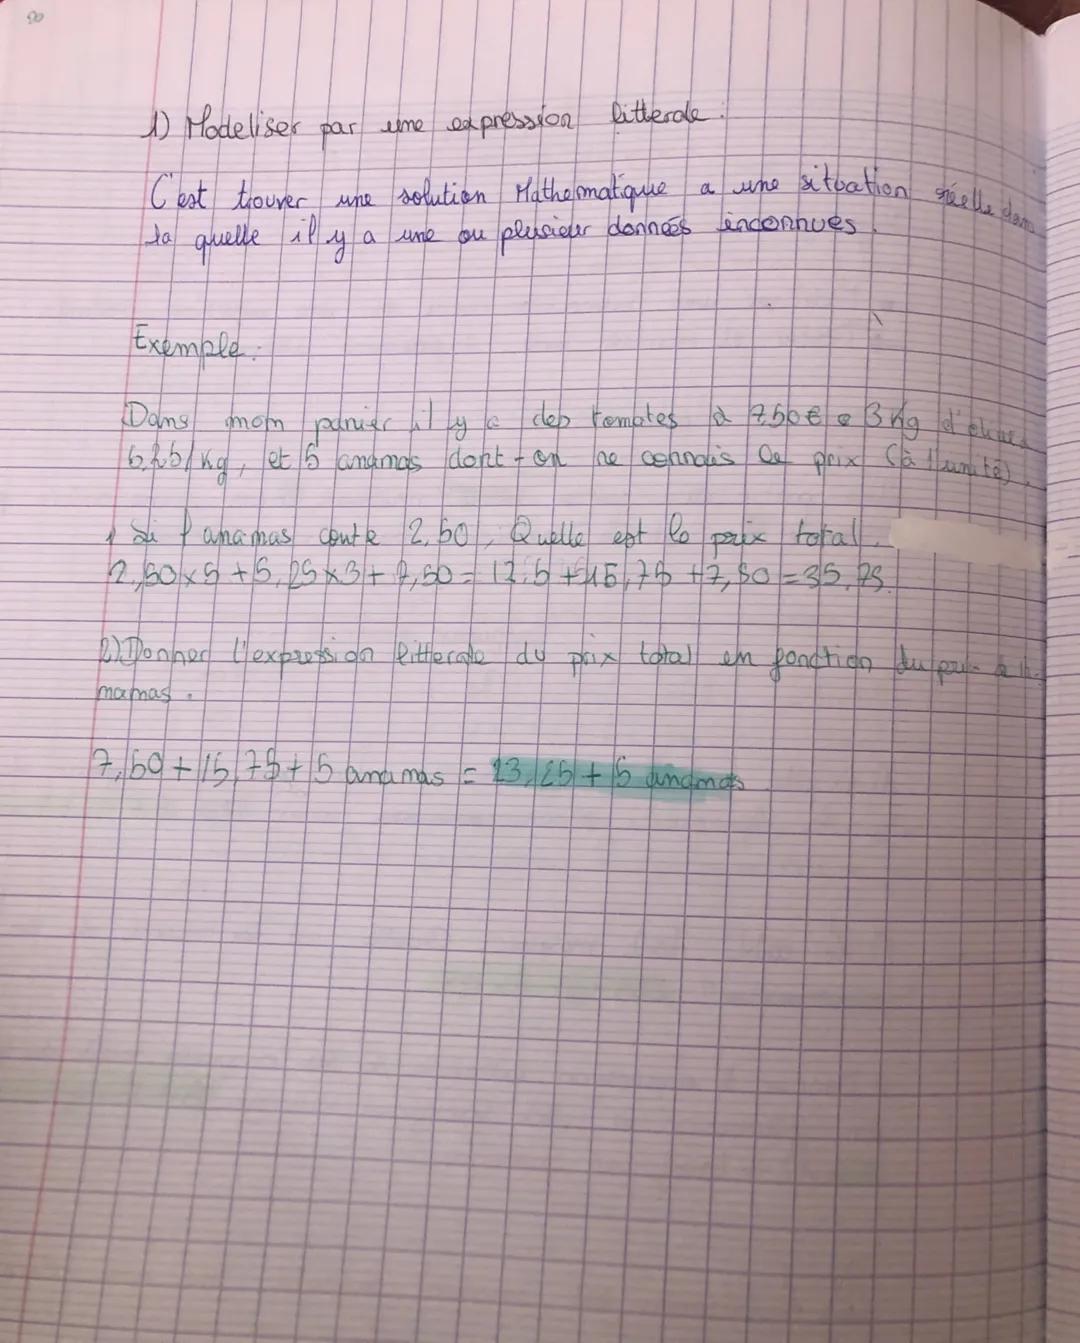 1) Modeliser par une expression litterale :
C'est trouver une solution Mathematique a une situation réelle dans
la quelle il y a une ou plusieur donnees inconnues.
Exemple :
Dans mon panier il y a des tomates à 7,50€ 3 kg
/kg, et 5 ananas dont-on ne connais le prix (à l'unité).
1 Si 1 ananas coute 2,50, Quelle est le prix total.
2,50×5+5,25×3+7,50= 12,5+15,75+7,50=35,75.
2) Donner l'expression litterale du prix total en fonction du
mamas.
7,50+15,75+5 ananas = 23,25+5 ananas